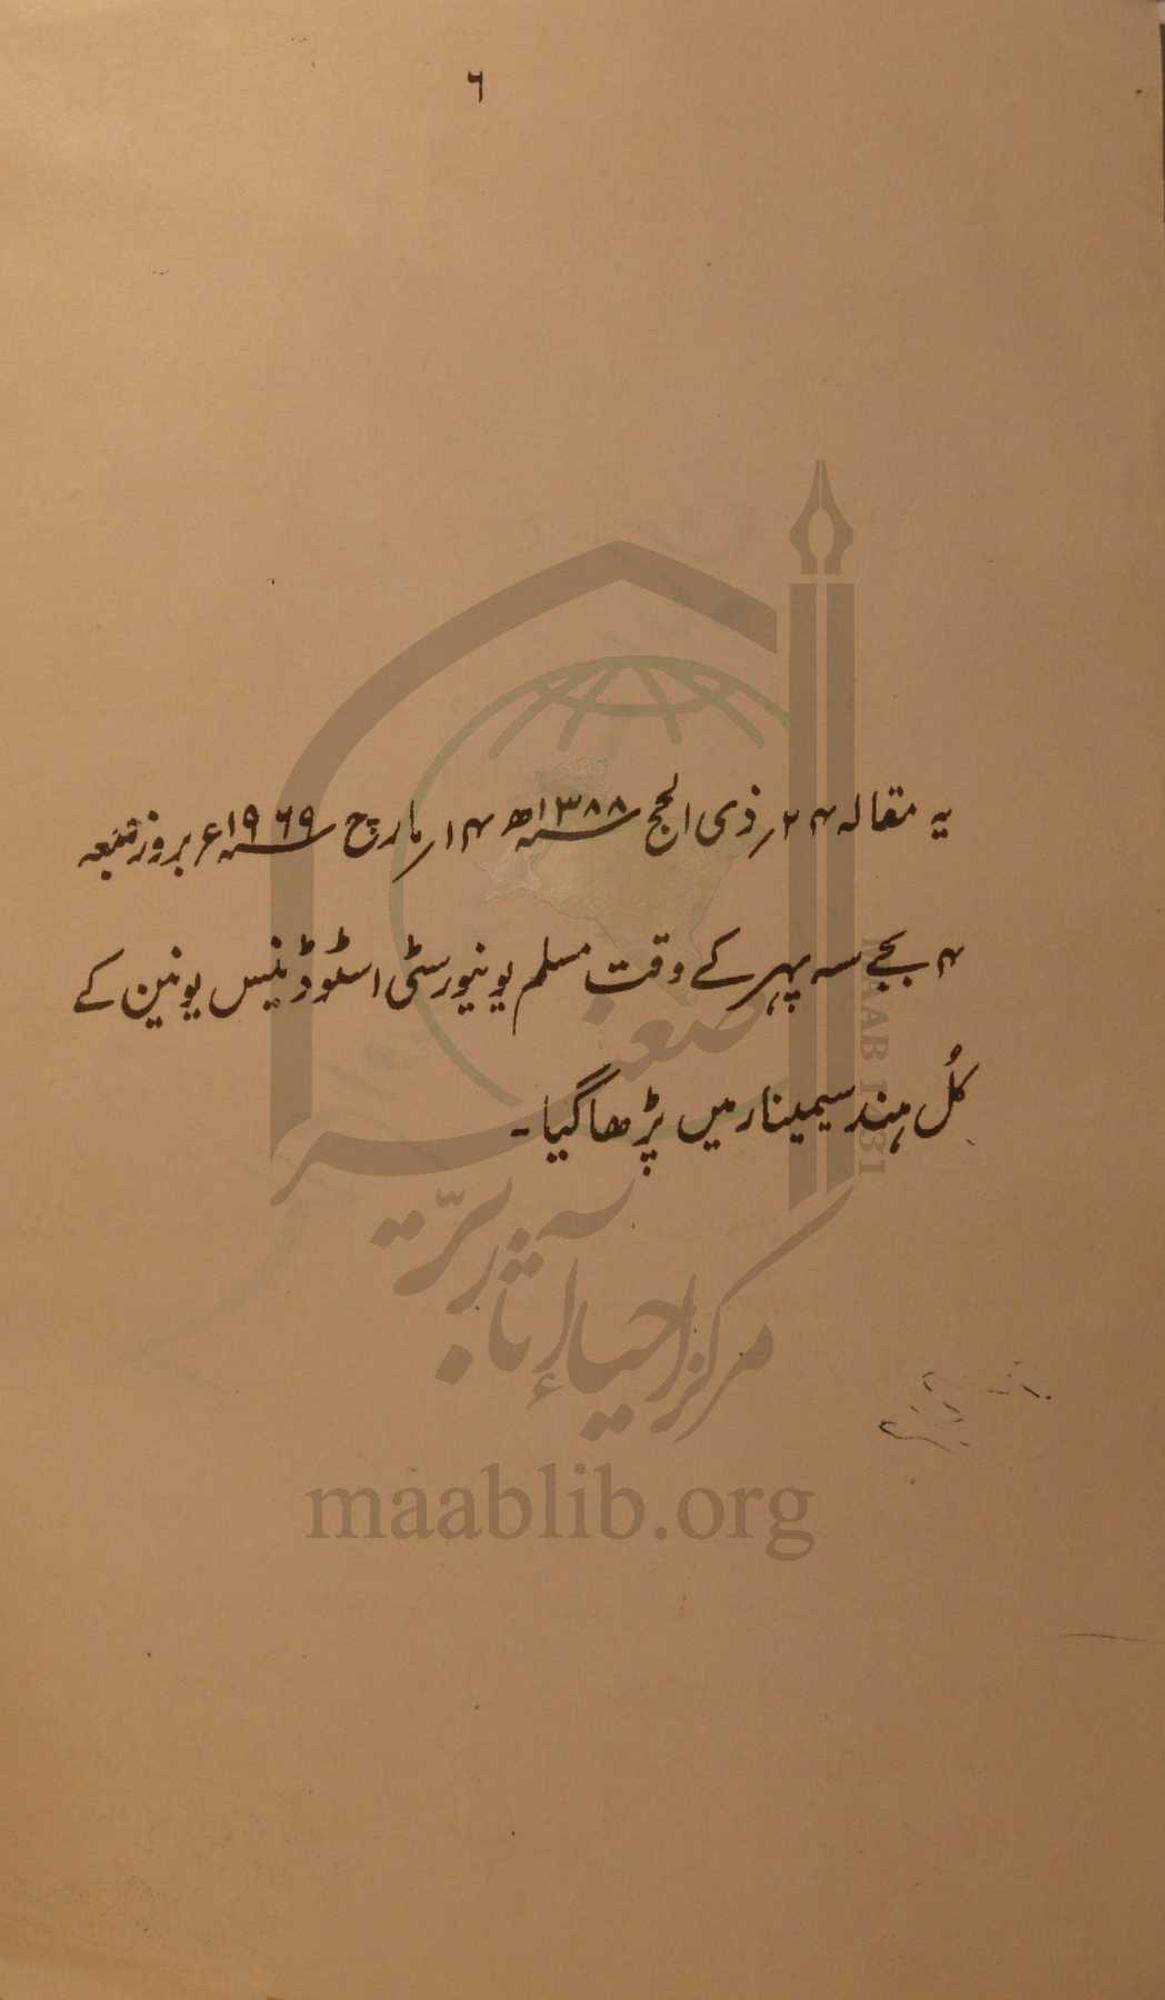 ٦
یہ مقالہ ۲۴؍ ذی الحج ۱۳۸۸ھ ۱۴؍ مارچ ۱۹۶۹ء بروز جمعہ
۴ بجے سہ پہر کے وقت مسلم یونیورسٹی اسٹوڈینٹس یونین کے
کُل ہند سیمینار میں پڑھا گیا۔
مرکز احیاء آثار برّصغیر
maablib.org